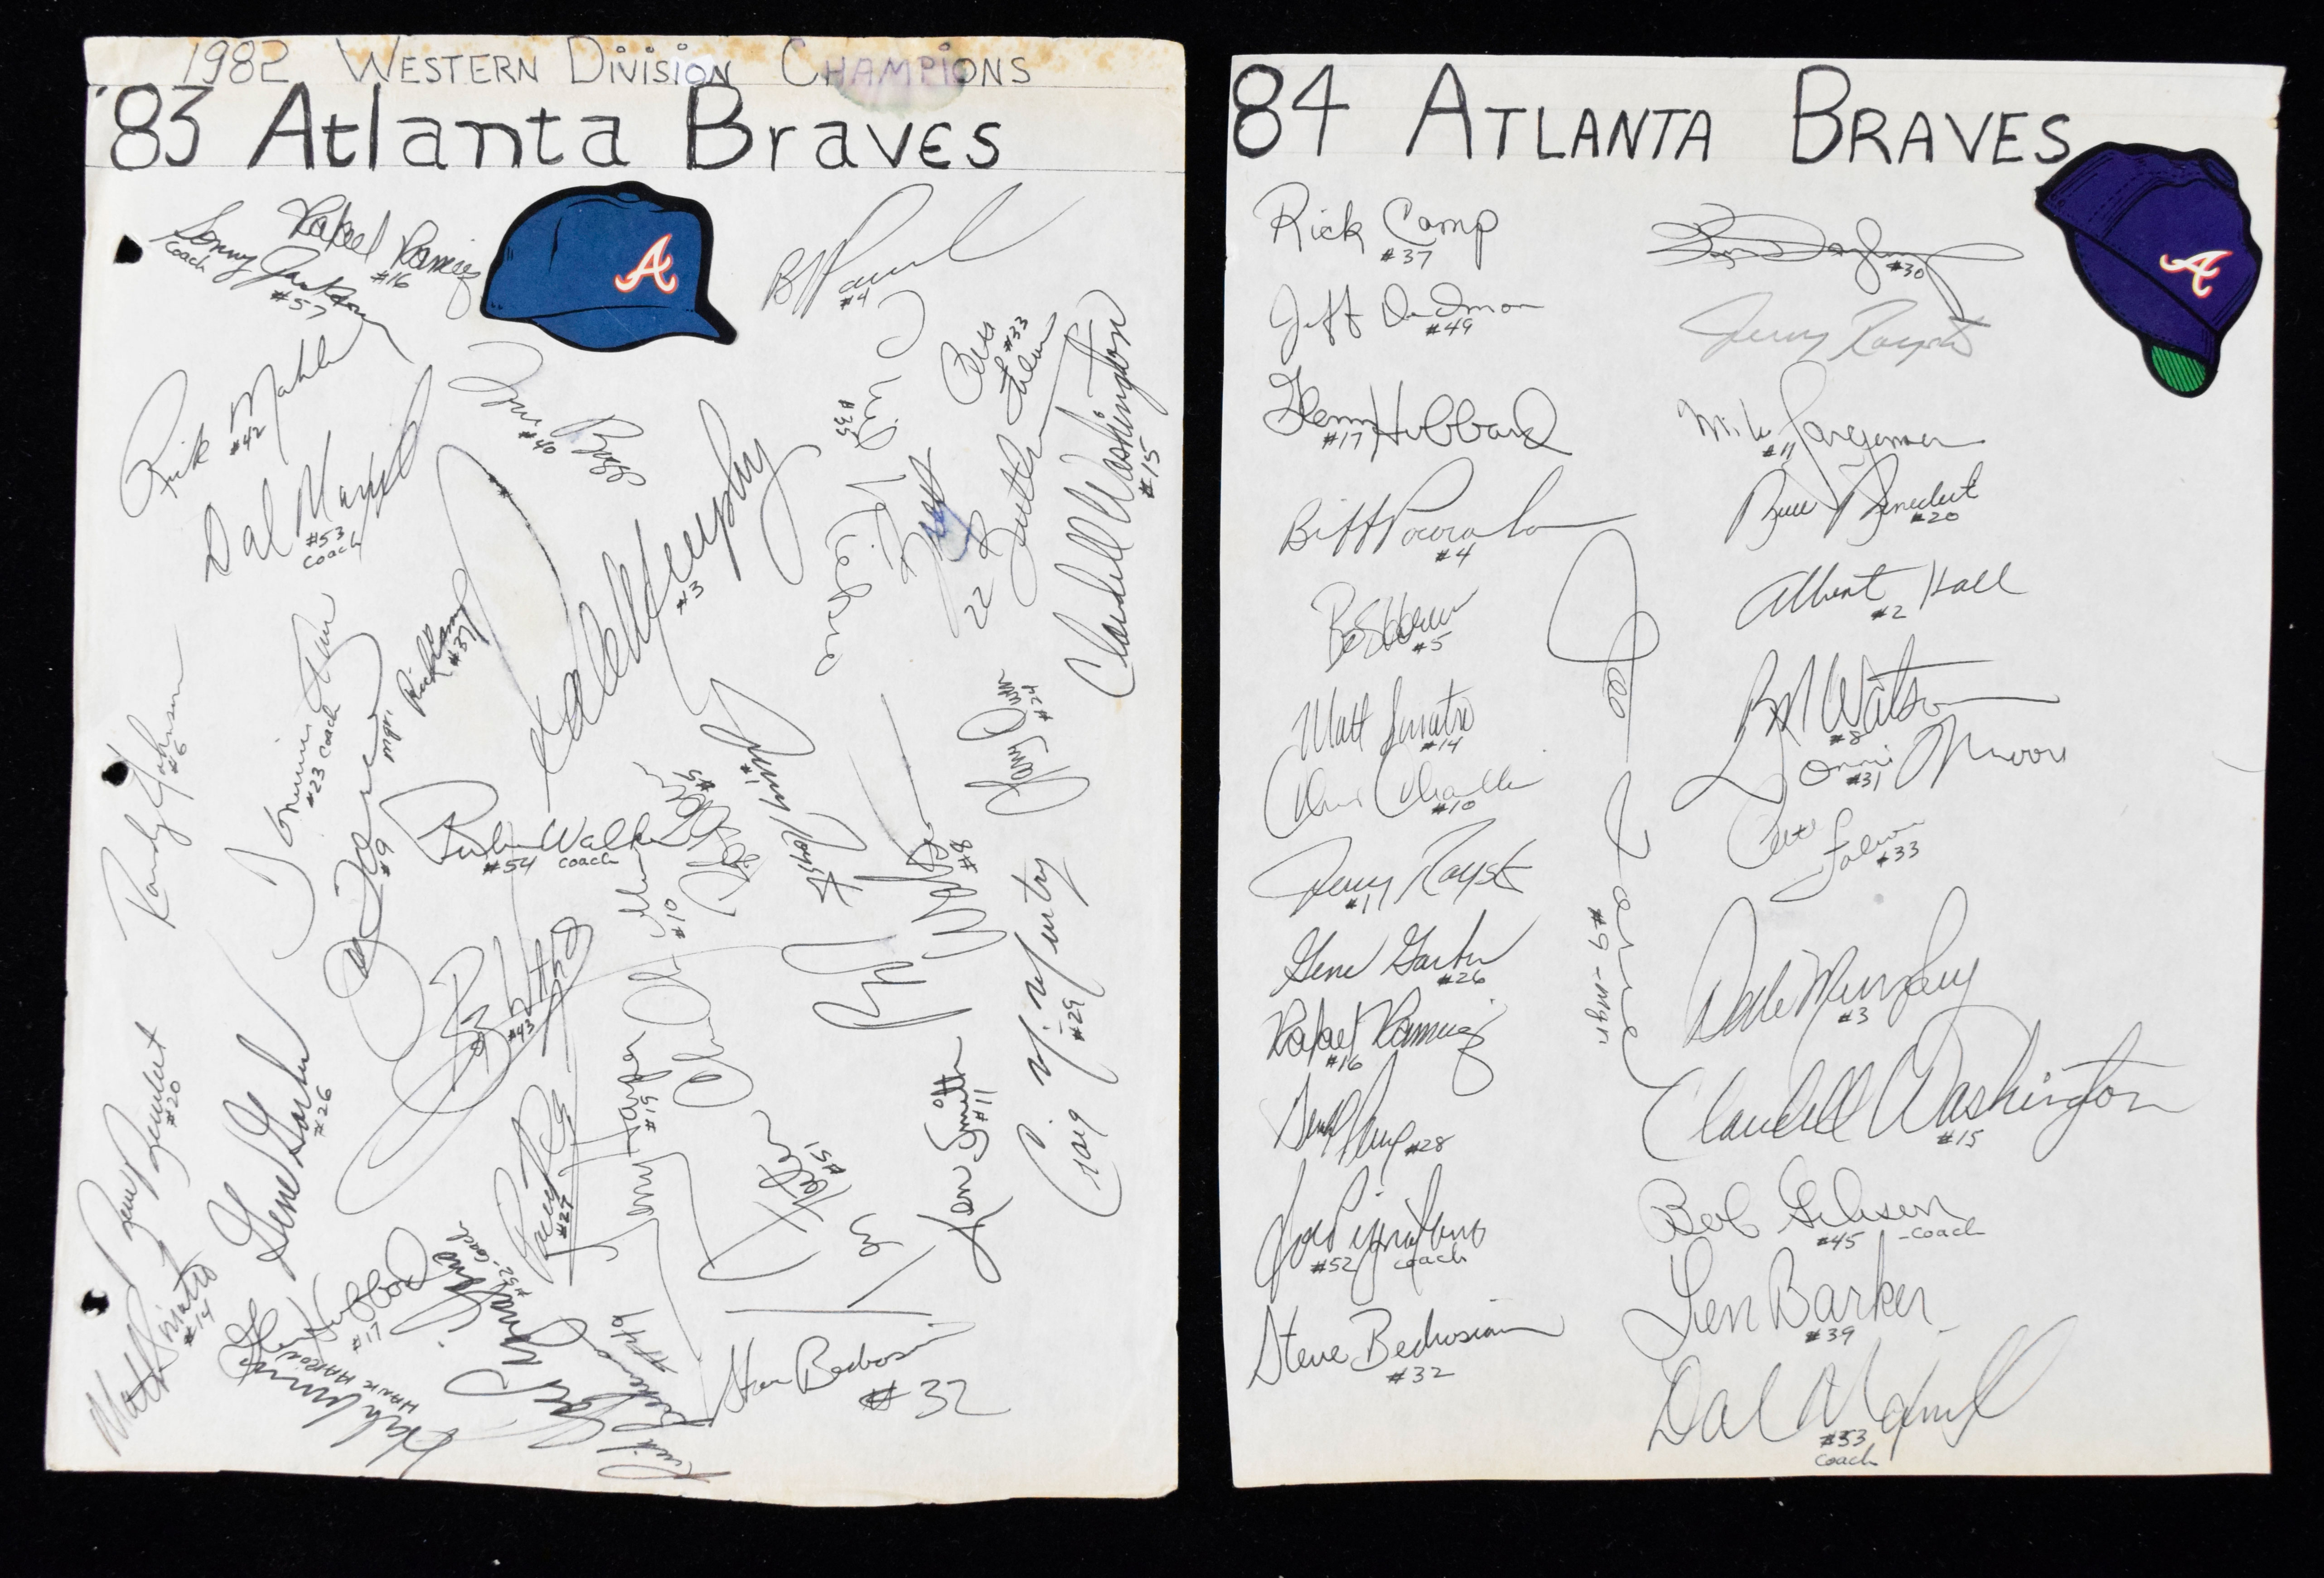 1982 WESTERN DIVISION CHAMPIONS
'83 Atlanta Braves
A
Rafael Ramirez
#16
Sonny Jackson
coach
#57
#4
Rick Mahler
#42
Dal Maxvill
#53
coach
#40
#3
#35
Pete Falcone
#33
22 Sutter
Claudell Washington
#15
Tommie Aaron
#23 coach
Joe Torre
#9
mgr.
Rick Camp
#37
Randy Johnson
#6
Rube Walker
#54 coach
#5
#10
Jerry Royster
#1
Bob Watson
#8
Larry Owen
#24
Craig McMurtry
#29
#43
Terry Harper
#19
#51
Ken Smith
#11
Bruce Benedict
#20
Gene Garber
#26
Pascual Perez
#27
Matt Sinatro
#14
Glenn Hubbard
#17
HANK AARON
Joe Pignatano
#52-coach
#49
Steve Bedrosian
#32
84 ATLANTA BRAVES
A
Rick Camp
#37
#30
Jeff Dedmon
#49
Jerry Royster
Glenn Hubbard
#17
Mike Jorgensen
#11
Biff Pocoroba
#4
Bruce Benedict
#20
Bob Horner
#5
Albert Hall
#2
Matt Sinatro
#14
Bob Watson
#8
Chris Chambliss
#10
Donnie Moore
#31
Jerry Royster
#1
Pete Falcone
#33
Joe Torre
#9-mgr.
Gene Garber
#26
Dale Murphy
#3
Rafael Ramirez
#16
Claudell Washington
#15
#28
Bob Gibson
#45 -coach
Joe Pignatano
#52 coach
Len Barker
#39
Steve Bedrosian
#32
Dal Maxvill
#53
coach